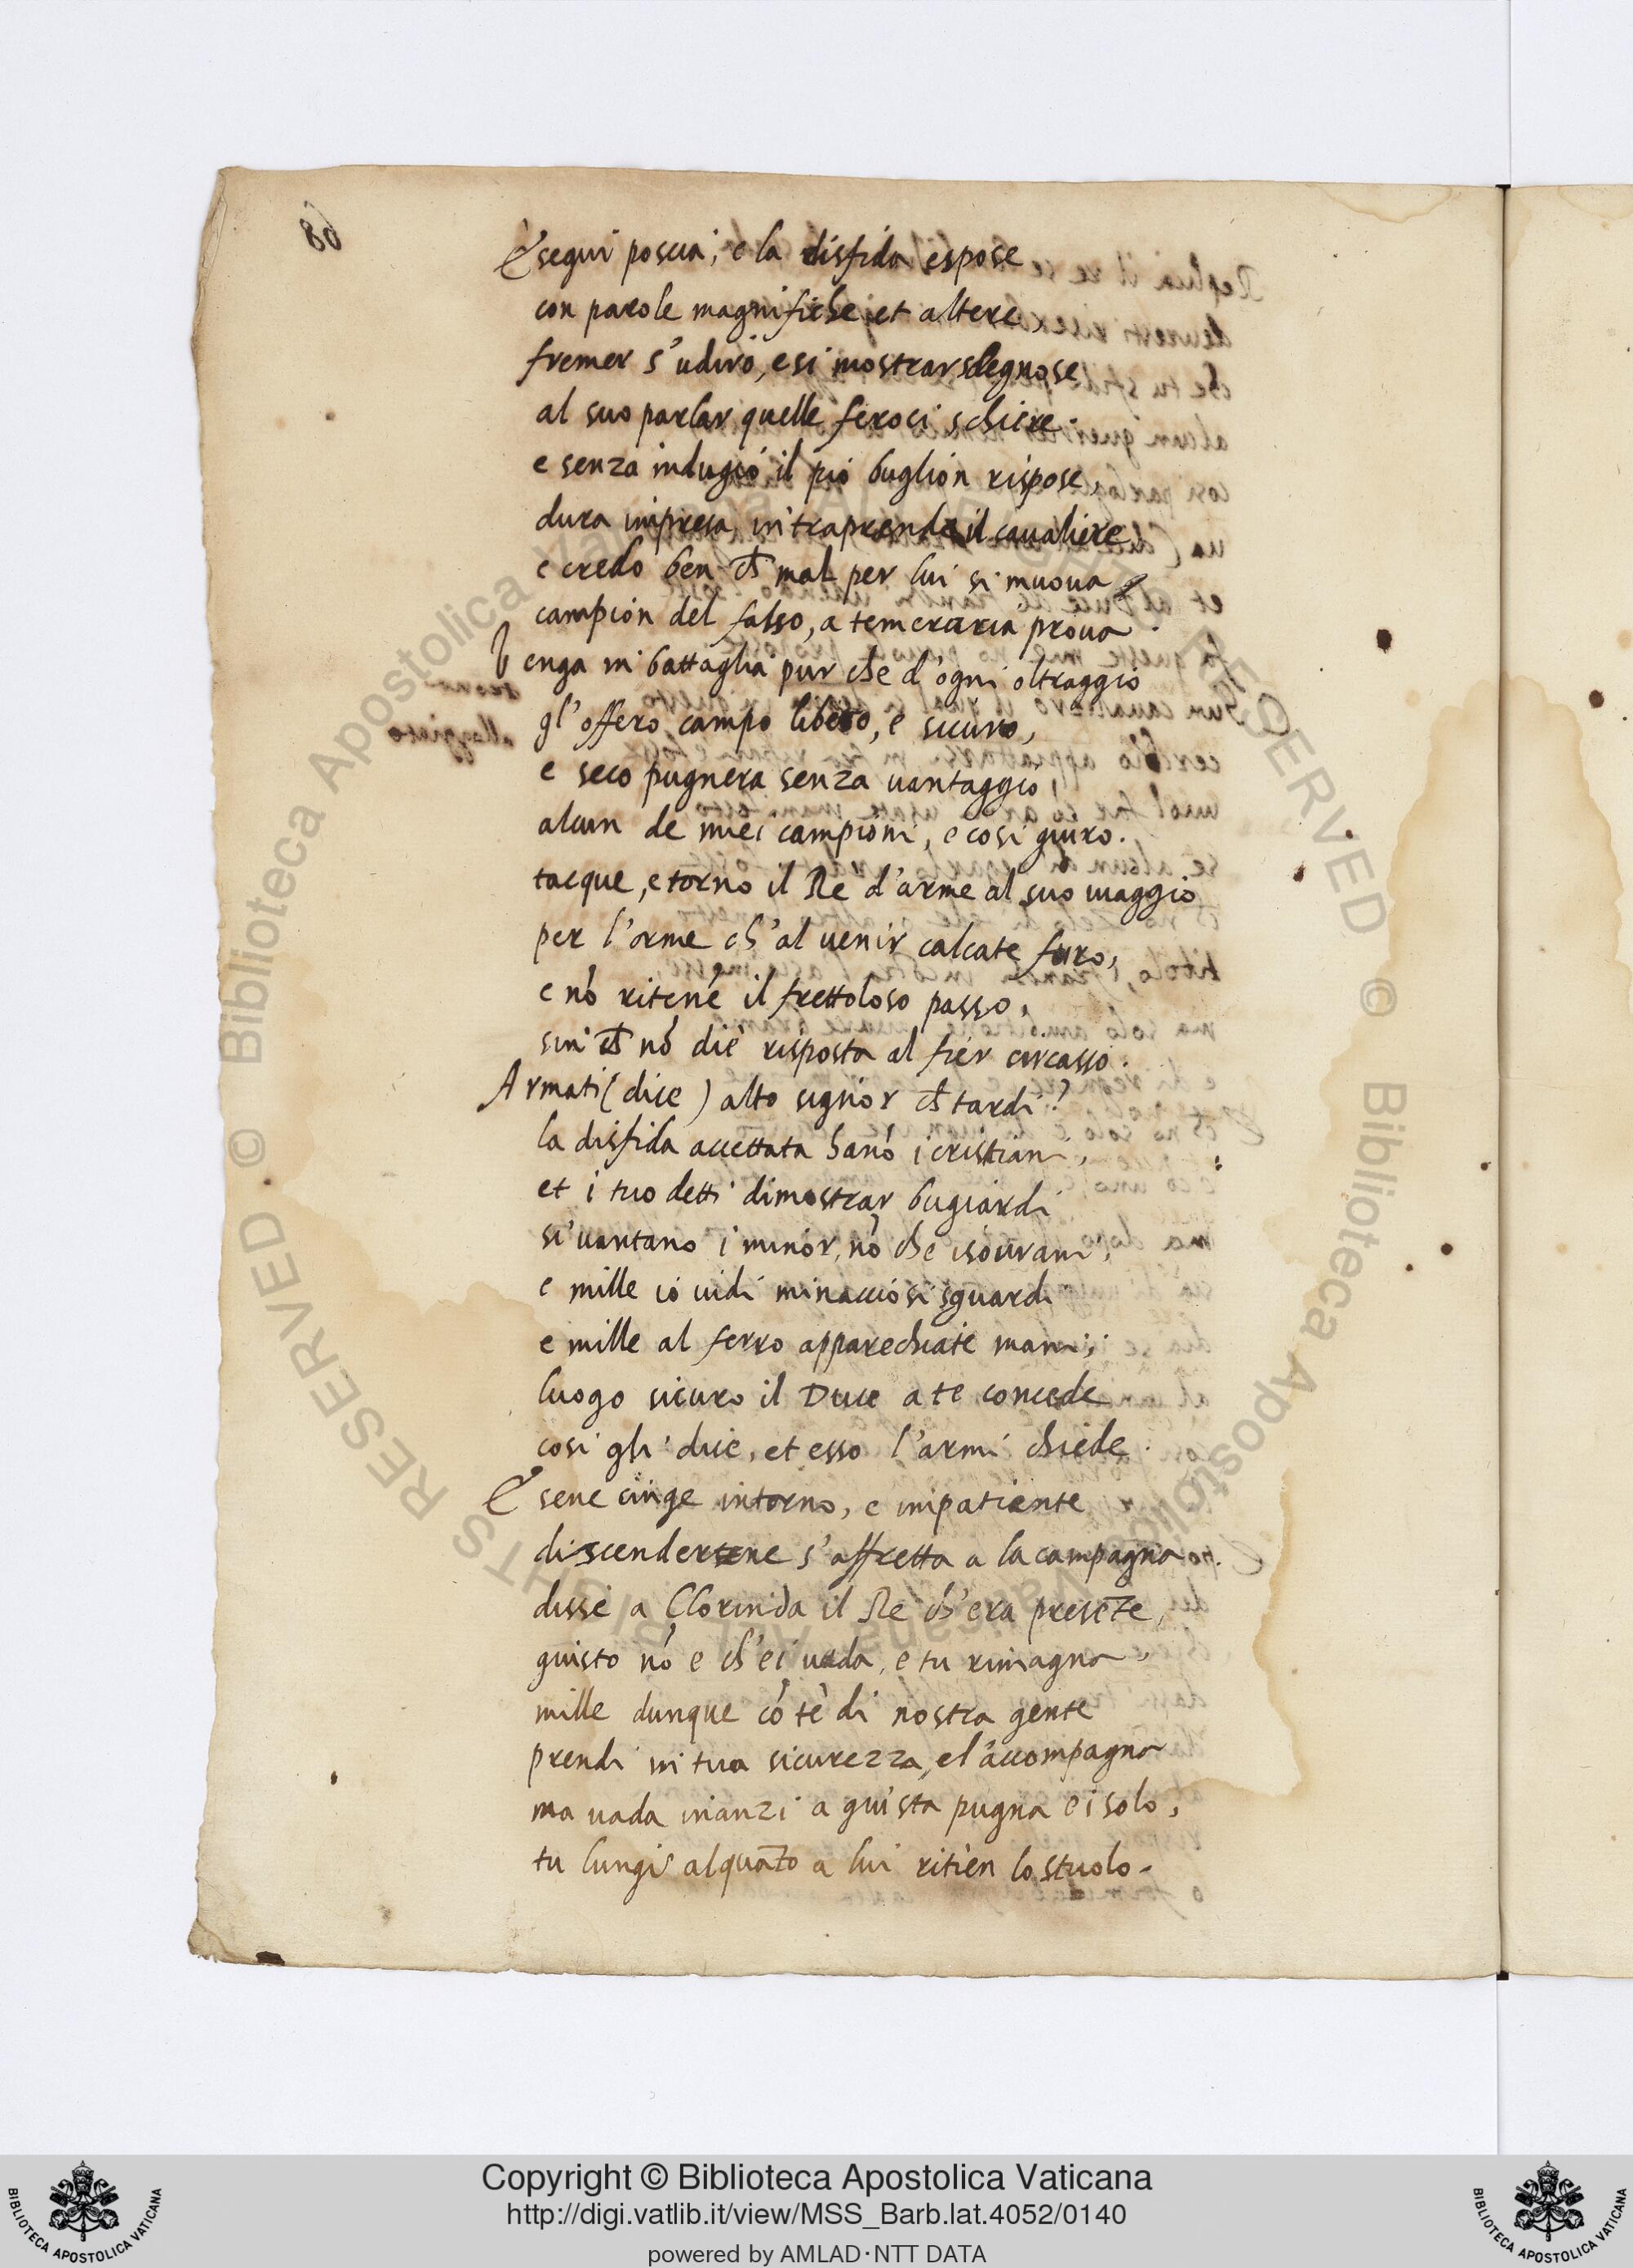 E segui poscia; e la disfida espose
con parole magnifiche, et altere,
fremer s'udirō, e si mostrar sdegnose
al suo parlar quelle feroci schiere.
e senza indugio il pio buglion rispose,
dura impresa intraprende il cavaliere,
e credo ben ch̄ mal per lui si muova
campion del falso, a temeraria prova.
Venga in battaglia pur che d'ogni oltraggio
gl'offero campo libero, e sicuro,
e seco pugnera senza vantaggio
alcun de miei campioni, e cosi giuro.
tacque, e torno il Re d'arme al suo viaggio
per l'orme ch'al venir calcate furo,
e nō ritene il frettoloso passo,
sin ch̄ nō die risposta al fier circasso.
Armati (dice) alto signor ch̄ tardi?
la disfida accettata hanō i cristiani,
et i tuo detti dimostrar bugiardi
si vantano i minor, nō che i sovrani,
e mille io vidi minacciosi sguardi
e mille al ferro apparechiate mani;
luogo sicuro il Duce a te concede
cosi gli dice, et esso l'armi chiede.
E sene cinge intorno, e impatiente
di scendersene s'affretta a la campagna.
disse a Clorinda il Re ch'era presēte,
giusto nō e ch'ei vada, e tu rimagna,
mille dunque cō te di nostra gente
prendi in tua sicurezza, e l'accompagna
ma vada inanzi a giusta pugna ei solo,
tu lungi alquāto a lui ritien lo stuolo.
Copyright © Biblioteca Apostolica Vaticana
http://digi.vatlib.it/view/MSS_Barb.lat.4052/0140
powered by AMLAD·NTT DATA
BIBLIOTECA APOSTOLICA VATICANA
BIBLIOTECA APOSTOLICA VATICANA